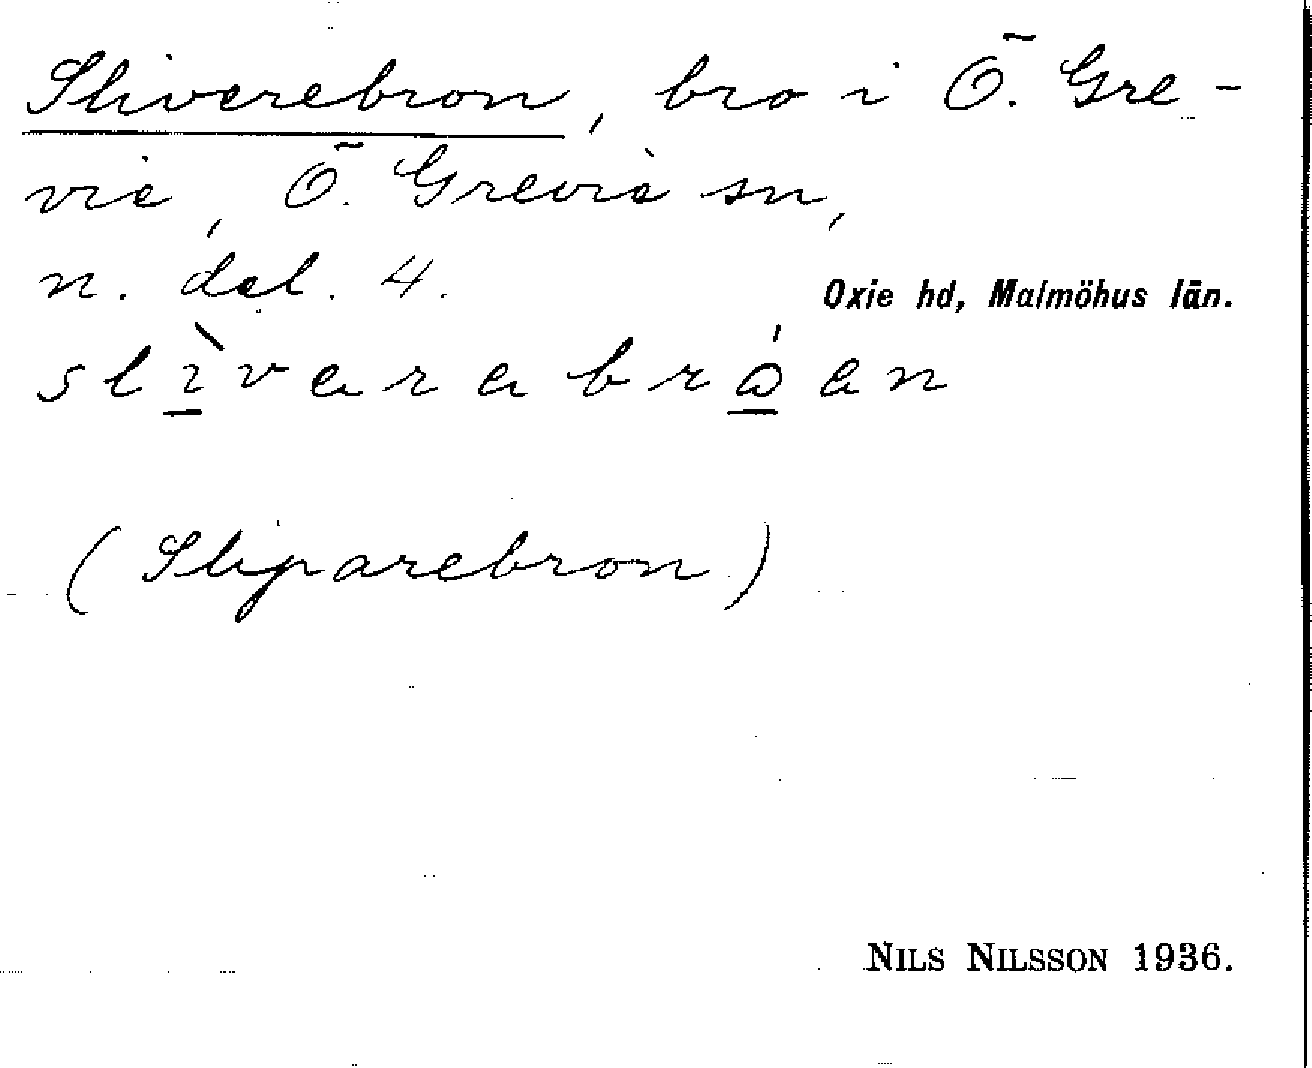 Sliverebron, bro i Ö. Gre-
vie, Ö. Grevie sn,
n. del. 4.
Oxie hd, Malmöhus län.
slìvarabróan
(Sliparebron)
NILS NILSSON 1936.